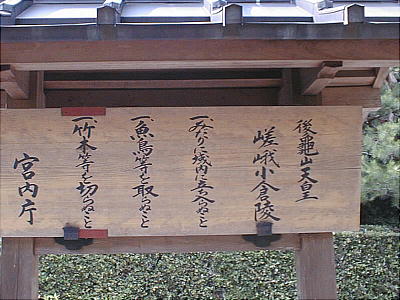 後龜山天皇
嵯峨小倉陵
一、みだりに域内に立ち入らぬこと
一、魚鳥等を取らぬこと
一、竹木等を切らぬこと
宮内庁